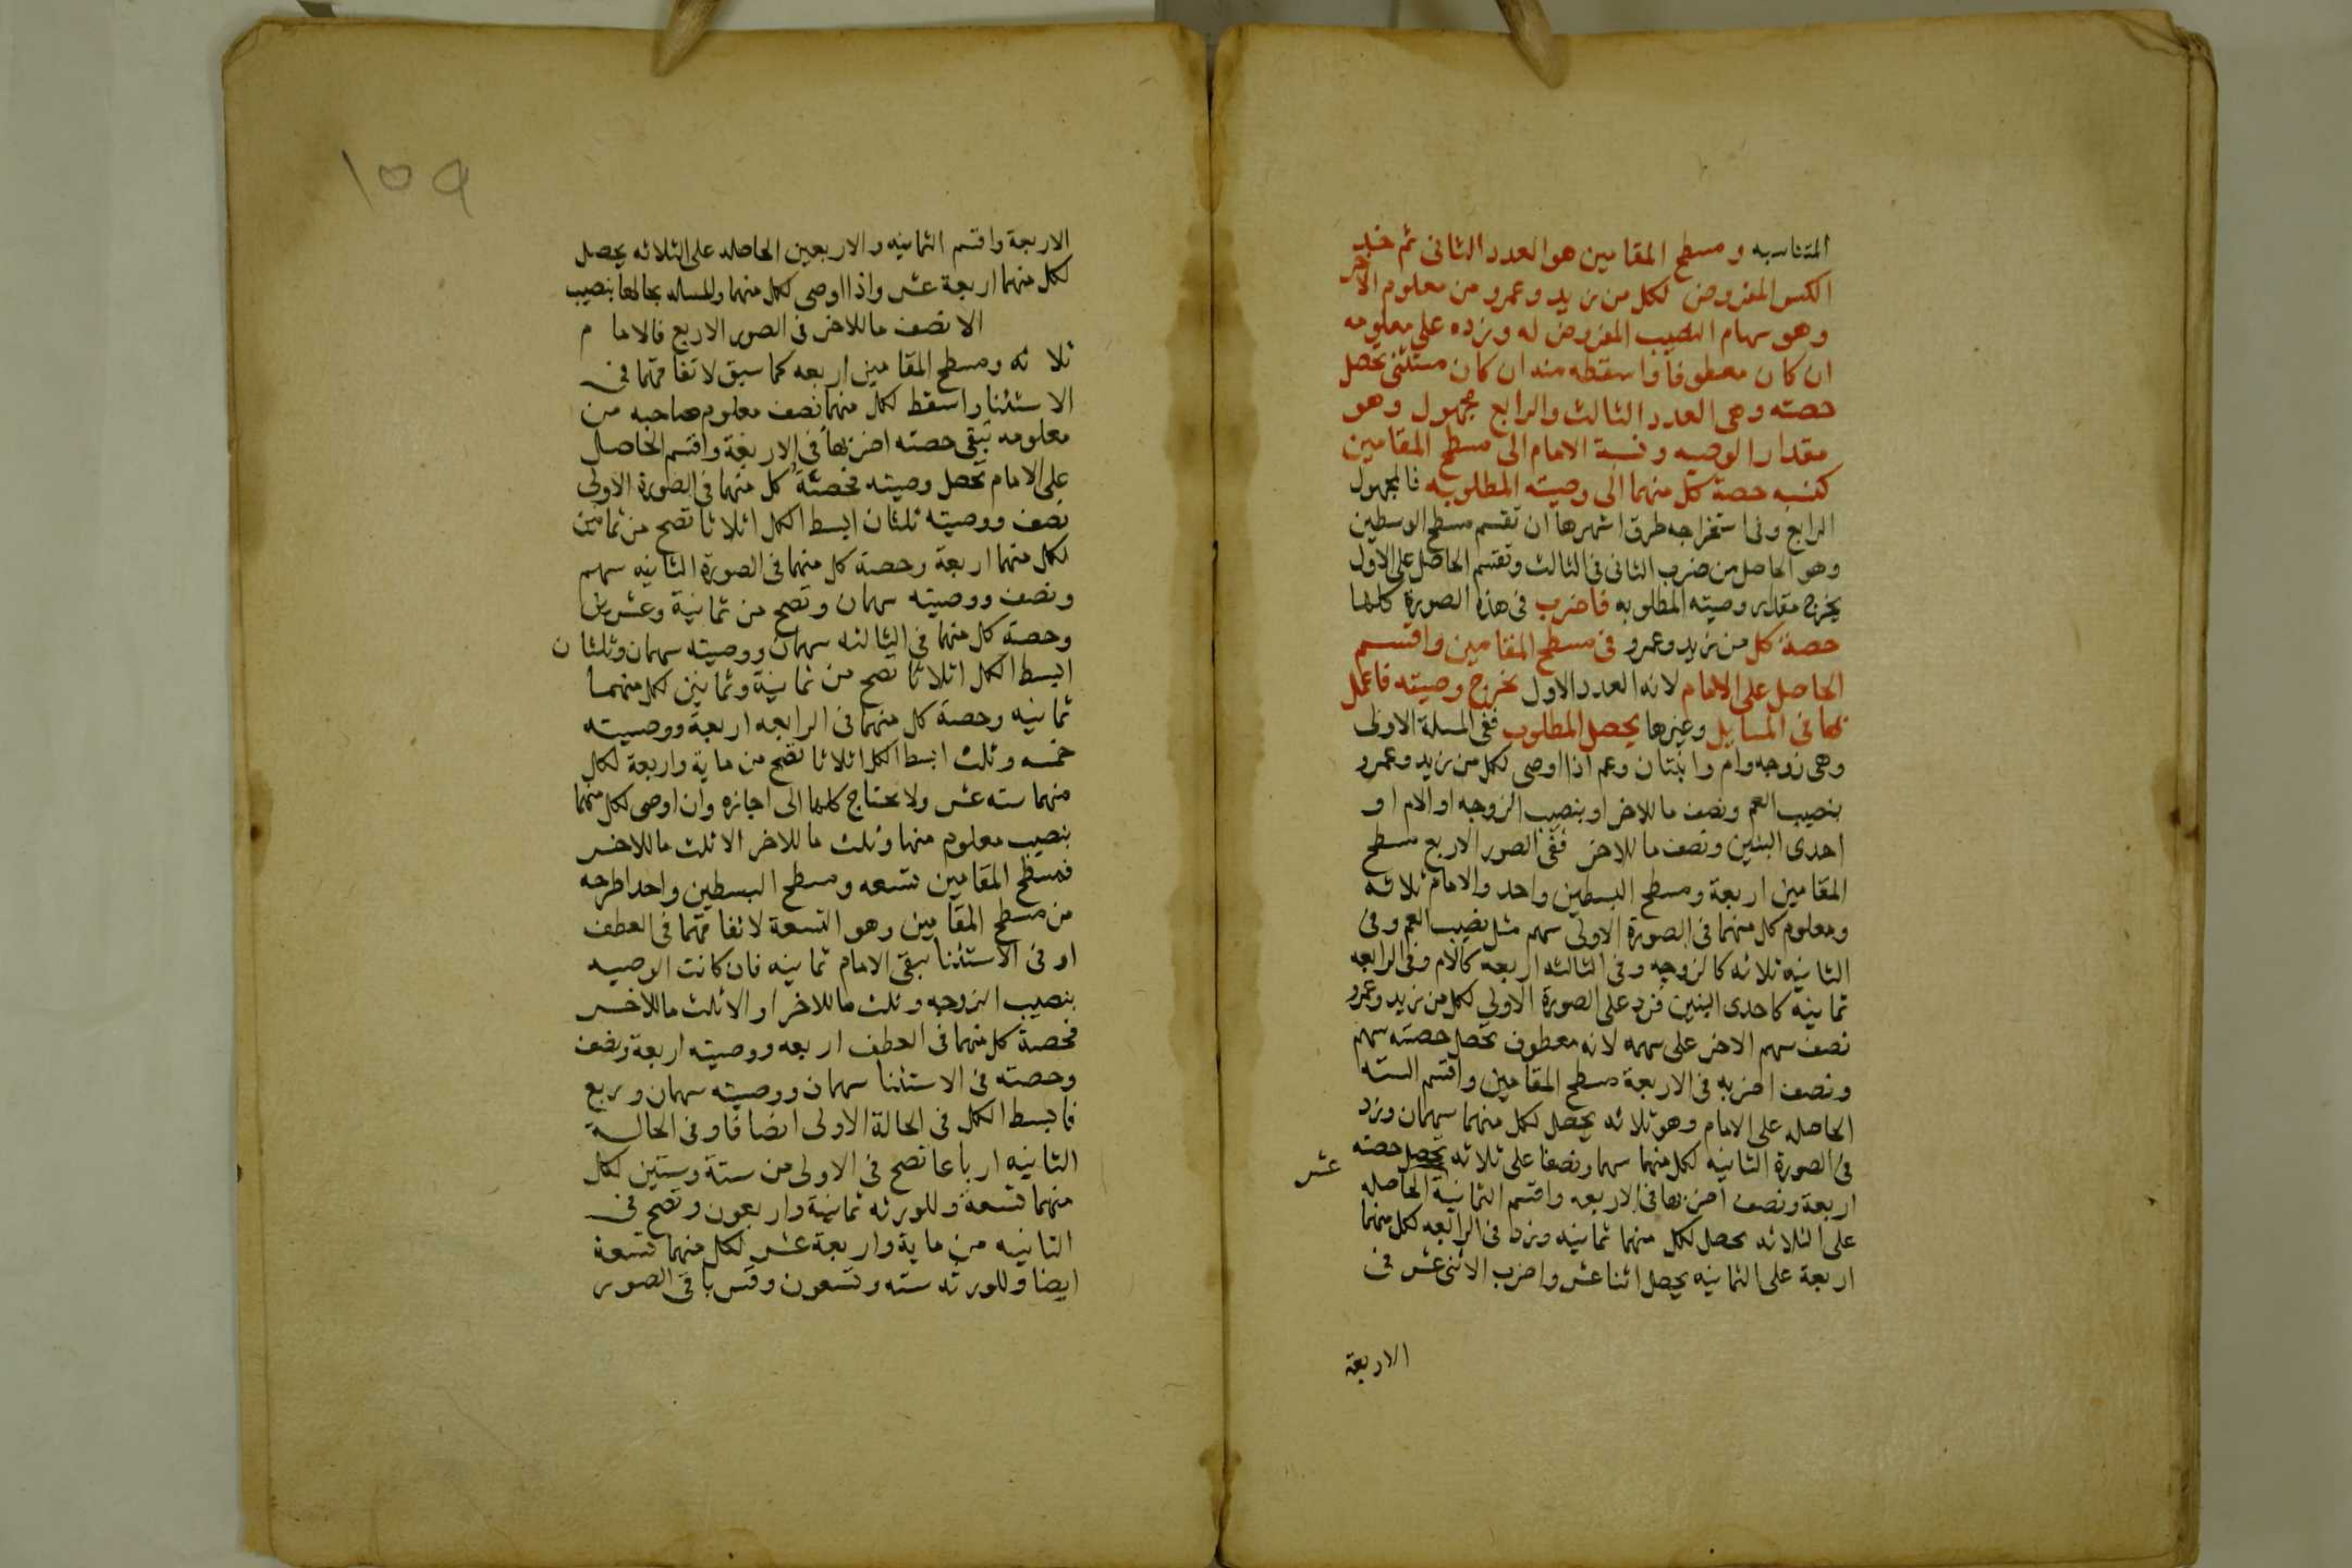 المتناسبه ومسطح المقامين هو العدد الثانى ثم خذ
الكسر المفروض لكل من زيد وعمرو من معلوم الاخر
وهو سهام النصيب المفروض له وزده على معلومه
ان كان معطوفا واسقطه منه ان كان مستثنى تحصل
حصته وهى العدد الثالث والرابع مجهول وهو
مقدار الوصيه ونسبة الامام الى مسطح المقامين
كنسبه حصة كل منهما الى وصيته المطلوبه فالمجهول
الرابع وفى استخراجه طرق اشهرها ان تقسم مسطح الوسطين
وهو الحاصل من ضرب الثانى فى الثالث وتقسم الحاصل على الاول
يخرج مقدار وصيته المطلوبه فاضرب فى هذه الصورة كلها
حصة كل من زيد وعمرو فى مسطح المقامين واقسم
الحاصل على الامام لانه العدد الاول تخرج وصيته فاعمل
بها فى المسايل وغيرها يحصل المطلوب ففى المسلة الاولى
وهى زوجه وام وابنتان وعم اذا اوصى لكل من زيد وعمرو
بنصيب العم ونصف ما للاخر او بنصيب الزوجه او الام او
احدى البنتين ونصف ما للاخر ففى الصور الاربع مسطح
المقامين اربعة ومسطح البسطين واحد والامام ثلاثه
ومعلوم كل منهما فى الصورة الاولى سهم مثل نصيب العم وفى
الثانيه ثلاثه كالزوجه وفى الثالثه اربعه كالام وفى الرابعه
ثمانيه كاحدى البنتين فزد على الصورة الاولى لكل من زيد وعمرو
نصف سهم الاخر على سهمه لانه معطوف تحصل حصته سهم
ونصف اضربه فى الاربعة مسطح المقامين واقسم السته
الحاصله على الامام وهو ثلاثه يحصل لكل منهما سهمان وزد
فى الصورة الثانيه لكل منهما سهما ونصفا على ثلاثه تحصل حصته
اربعة ونصف اضربها فى الاربعه واقسم الثمانية الحاصله
عشر
على الثلاثه يحصل لكل منهما ثمانيه وزد فى الرابعه لكل منهما
اربعة على الثمانيه يحصل اثنا عشر واضرب الاثنى عشر فى
الاربعة
١٥٩
الاربعة واقسم الثمانيه والاربعين الحاصله على الثلاثه يحصل
لكل منهما اربعة عشر واذا اوصى لكل منهما والمساله بحالها بنصيب
الا نصف ما للاخر فى الصور الاربع فالاما م
ثلا ثه ومسطح المقامين اربعه كما سبق لاتفاقهما فى
الاستثنا واسقط لكل منهما نصف معلوم صاحبه من
معلومه تبقى حصته اضربها فى الاربعة واقسم الحاصل
على الامام تحصل وصيته فحصة كل منهما فى الصورة الاولى
نصف ووصيته ثلثان ابسط الكل اثلاثا تصح من ثمانين
لكل منهما اربعة وحصة كل منهما فى الصورة الثانيه سهم
ونصف ووصيته سهمان وتصح من ثمانية وعشرين
وحصة كل منهما فى الثالثه سهمان ووصيته سهمان وثلثا ن
ابسط الكل اثلاثا تصح من ثمانية وثمانين لكل منهما
ثمانيه وحصة كل منهما فى الرابعه اربعة ووصيته
خمسه وثلث ابسط الكل اثلاثا تصح من ماية واربعة لكل
منهما سته عشر ولا يحتاج كلها الى اجازه وان اوصى لكل منهما
بنصيب معلوم منها وثلث ما للاخر الا ثلث ما للاخر
فمسطح المقامين تسعه ومسطح البسطين واحد اطرحه
من مسطح المقامين وهو التسعة لاتفاقهما فى العطف
او فى الاستثنا يبقى الامام ثمانيه فان كانت الوصيه
بنصيب الزوجه وثلث ما للاخر او الا ثلث ما للاخر
فحصة كل منهما فى العطف اربعه ووصيته اربعة ونصف
وحصته فى الاستثنا سهمان ووصيته سهمان وربع
فابسط الكل فى الحالة الاولى انصافا وفى الحالة
الثانيه ارباعا تصح فى الاولى من ستة وستين لكل
منهما تسعة وللورثه ثمانية واربعون وتصح فى
الثانيه من ماية واربعة عشر لكل منهما تسعة
ايضا وللورثه سته وتسعون وقس باقى الصور